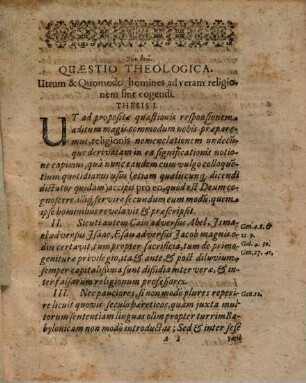 QUÆSTIO THEOLOGICA.
Utrum & Quomodo homines ad veram religio-
nem sint cogendi.
THESIS I.
UT ad propositæ quæstionis responsionem
aditum magis commodum nobis præpare-
mus, religionis nomenclationem undecun-
que derivatam in ea significationis notio-
ne capimus, quà nunc eandem cum vulgo colloquen-
tium quotidianus usus (etiam qualicunq; dicendi
dictator quidam) accipit pro eo, quod est Deum cogno-
scere, illiq; servire secundum eum modū, quem
ipse hominibus revelavit & præscripsit.
II. Sicuti autem Cain adversus Abel, Isma-
el adversus Isaac, Esau adversus Jacob magnis o-
diis certavit, tum propter sacrificia, tum de primo-
genituræ privilegio, ita & ante, & post diluvium
semper capitalissima sunt dissidia inter veræ, & in-
ter falsarum religionum professores.
Gen. 4. 8. &
21 9.
Gal. 4. 30.
Gen. 27. 41.
III. Nec pauciores, si non modò plures reperi-
re licuit quovis seculo heretico, quàm juxta mul-
torum sententiam linguas olim propter turrim Ba-
bylonicam non modò introductas; Sed & inter sese
Gen. 11.
A 2